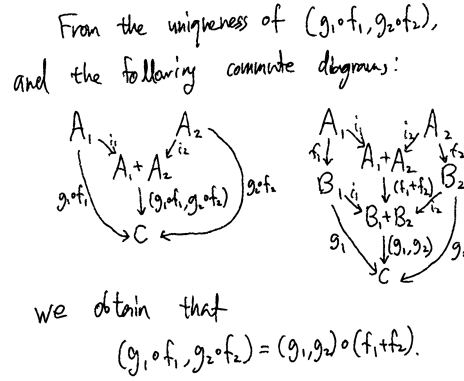 From the uniqueness of (g₁∘f₁, g₂∘f₂),
and the following commute diagrams:
A₁ A₂
i₁ i₂
A₁+A₂
g₁∘f₁ (g₁∘f₁, g₂∘f₂) g₂∘f₂
C
A₁ i₁ i₂ A₂
f₁ A₁+A₂ f₂
B₁ i₁ (f₁+f₂) i₂ B₂
B₁+B₂
g₁ (g₁, g₂) g₂
C
we obtain that
(g₁∘f₁, g₂∘f₂) = (g₁, g₂)∘(f₁+f₂).